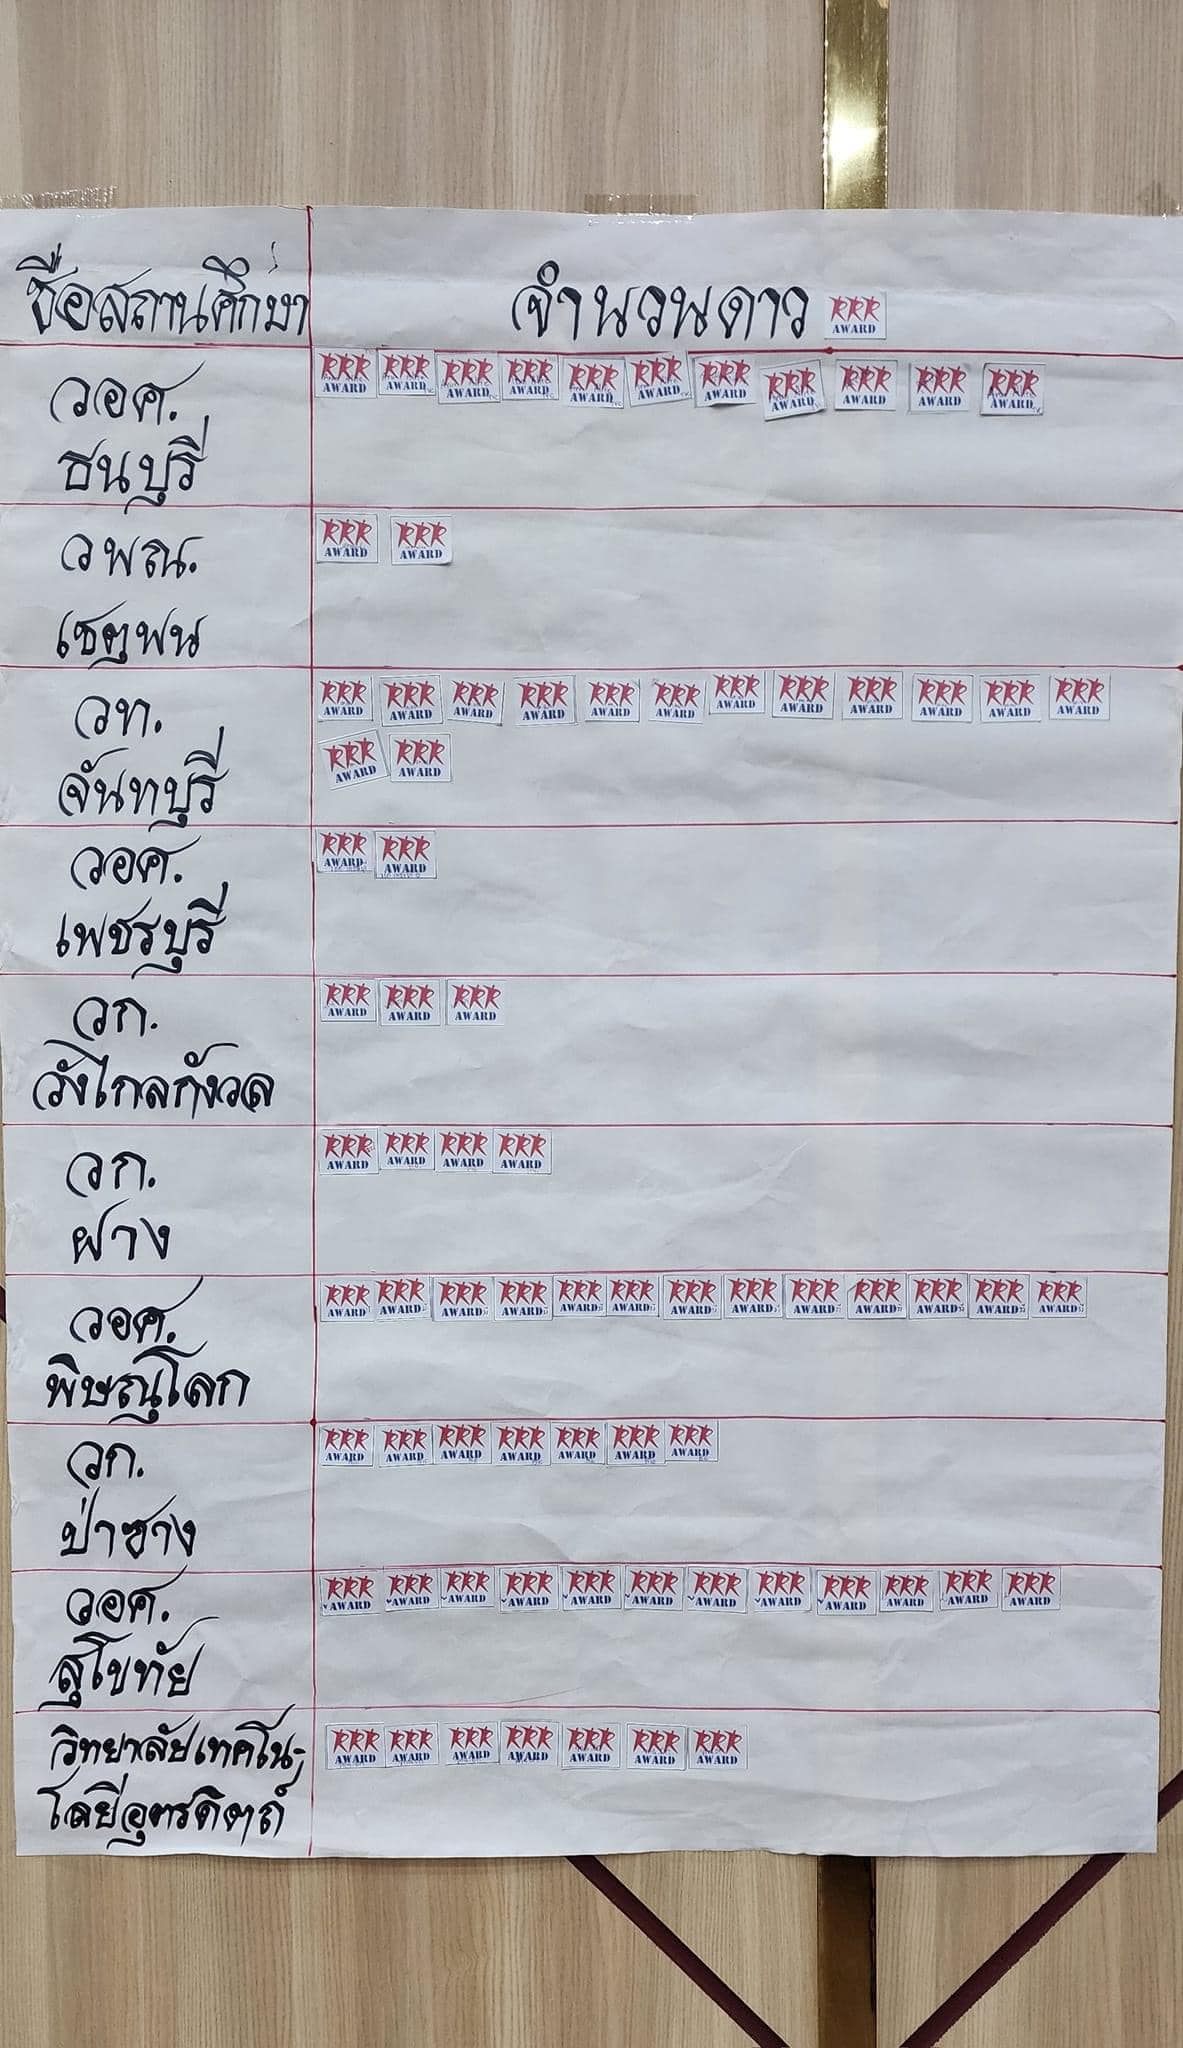 ชื่อสถานศึกษา
จำนวนดาว RRR AWARD
วอศ.
ธนบุรี
RRR AWARD RRR AWARD RRR AWARD RRR AWARD RRR AWARD RRR AWARD RRR AWARD RRR AWARD RRR AWARD RRR AWARD RRR AWARD
วพณ.
เชตุพน
RRR AWARD RRR AWARD
วท.
จันทบุรี
RRR AWARD RRR AWARD RRR AWARD RRR AWARD RRR AWARD RRR AWARD RRR AWARD RRR AWARD RRR AWARD RRR AWARD RRR AWARD RRR AWARD
RRR AWARD RRR AWARD
วอศ.
เพชรบุรี
RRR AWARD RRR AWARD
วก.
วังไกลกังวล
RRR AWARD RRR AWARD RRR AWARD
วก.
ฝาง
RRR AWARD RRR AWARD RRR AWARD RRR AWARD
วอศ.
พิษณุโลก
RRR AWARD RRR AWARD RRR AWARD RRR AWARD RRR AWARD RRR AWARD RRR AWARD RRR AWARD RRR AWARD RRR AWARD RRR AWARD RRR AWARD RRR AWARD
วก.
ป่าซาง
RRR AWARD RRR AWARD RRR AWARD RRR AWARD RRR AWARD RRR AWARD RRR AWARD
วอศ.
สุโขทัย
RRR AWARD RRR AWARD RRR AWARD RRR AWARD RRR AWARD RRR AWARD RRR AWARD RRR AWARD RRR AWARD RRR AWARD RRR AWARD RRR AWARD
วิทยาลัยเทคโน-
โลยีอุตรดิตถ์
RRR AWARD RRR AWARD RRR AWARD RRR AWARD RRR AWARD RRR AWARD RRR AWARD